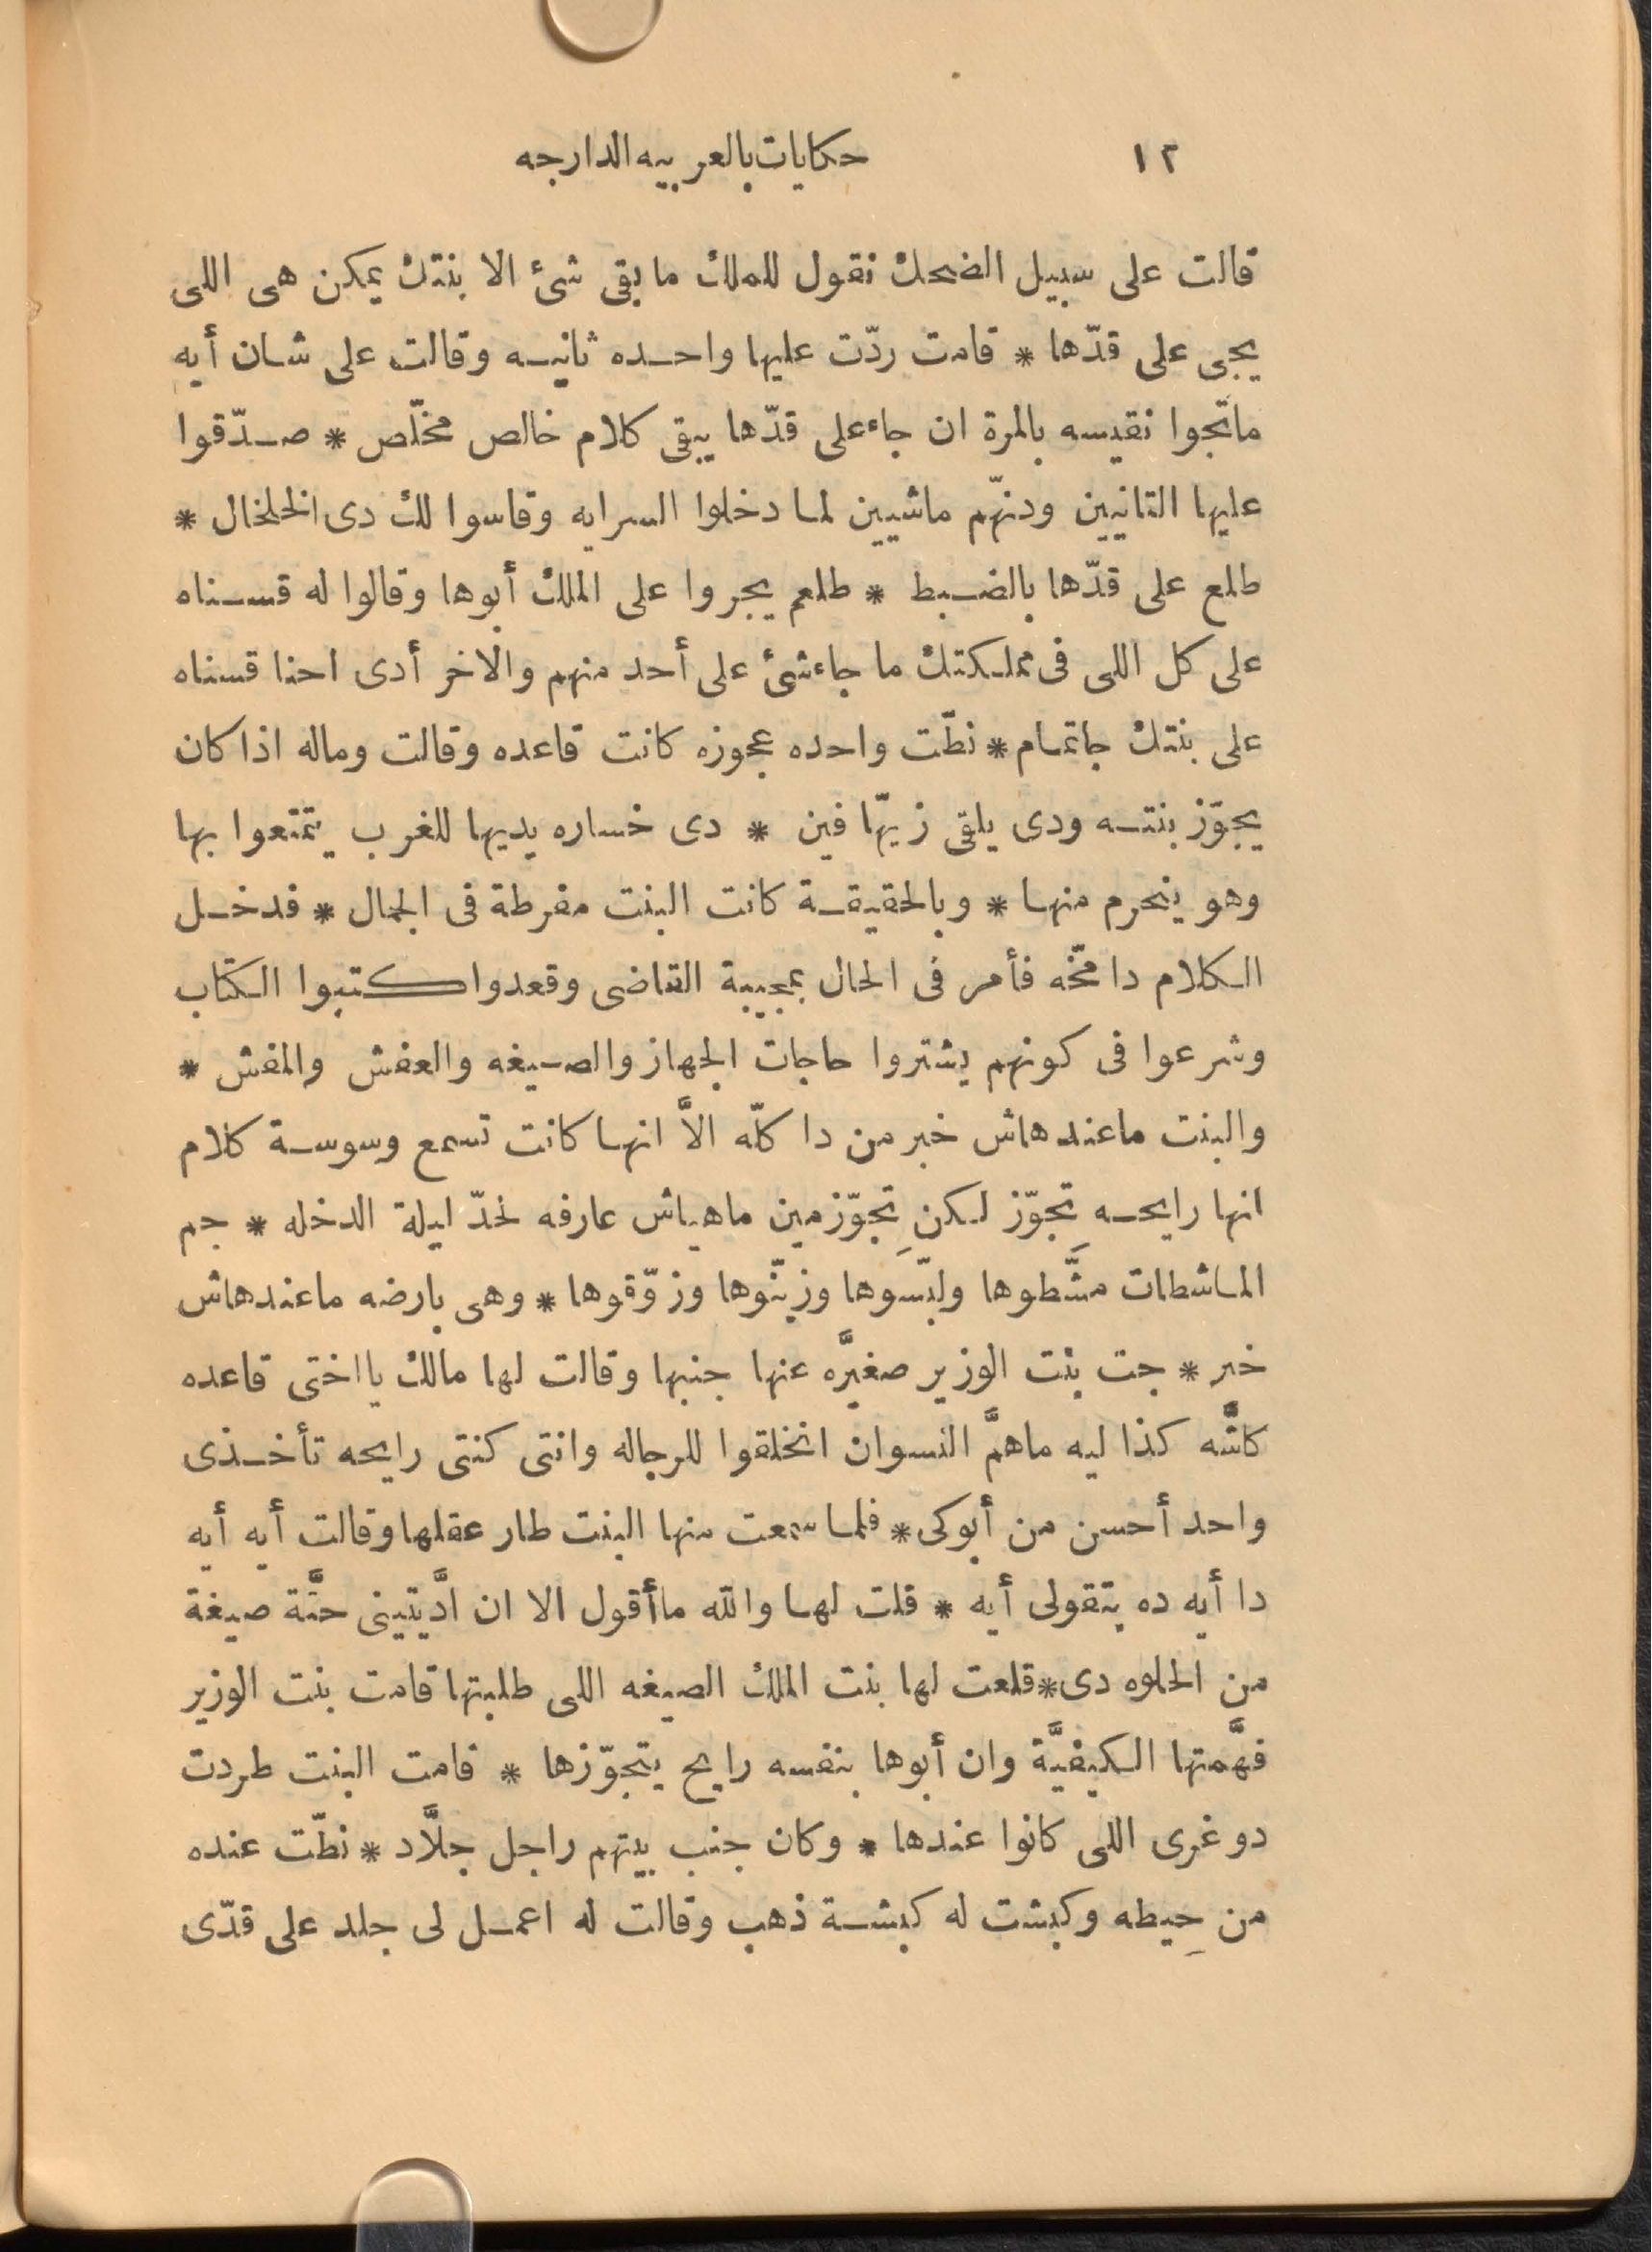 ١٢ حكايات بالعربيه الدارجه
قالت على سبيل الضحك نقول للملك ما بقى شئ الا بنتك يمكن هى اللى
يجى على قدّها * قامت ردّت عليها واحده ثانيه وقالت على شان أيه
ماتّجوا نقيسه بالمرة ان جاء على قدّها يبقى كلام خالص مخلّص * صدّقوا
عليها التانيين ودنّهم ماشيين لما دخلوا السرايه وقاسوا لك دى الخلخال *
طلع على قدّها بالضبط * طلعم يجروا على الملك أبوها وقالوا له قسناه
على كل اللى فى مملكتك ما جاء شئ على أحد منهم والآخر أدى احنا قسناه
على بنتك جا تمام * نطّت واحده عجوزه كانت قاعده وقالت وماله اذا كان
يجوّز بنته ودى يلقى زيّها فين * دى خساره يديها للغرب يتمتعوا بها
وهو ينحرم منها * وبالحقيقة كانت البنت مفرطة فى الجمال * فدخل
الكلام دا مخّه فأمر فى الحال بمجيبة القاضى وقعدوا كتبوا الكتاب
وشرعوا فى كونهم يشتروا حاجات الجهاز والصيغه والعفش والمفش *
والبنت ماعندهاش خبر من دا كلّه الاَّ انها كانت تسمع وسوسة كلام
انها رايحه تِجوّز لكن تِجوّز مين ماهياش عارفه لحدّ ليلة الدخله * جم
الماشطات مشَّطوها ولبّسوها وزيّنوها وزوّقوها * وهى بارضه ماعندهاش
خبر * جت بنت الوزير صغيَّره عنها جنبها وقالت لها مالك يا اختى قاعده
كاشَّه كذا ليه ماهمَّ النسوان انخلقوا للرجاله وانتى كنتى رايحه تأخذى
واحد أحسن من أبوكى * فلما سمعت منها البنت طار عقلها وقالت أيه أيه
دا أيه ده بتقولى أيه * قلت لها والله ماأقول الا ان ادَّيتينى حتَّة صيغة
من الحلوه دى * قلعت لها بنت الملك الصيغه اللى طلبتها قامت بنت الوزير
فهَّمتها الكيفيَّة وان أبوها بنفسه رايح يتجوّزها * قامت البنت طردت
دوغرى اللى كانوا عندها * وكان جنب بيتهم راجل جلاَّد * نطّت عنده
من حِيطه وكبشت له كبشة ذهب وقالت له اعمل لى جلد على قدّى